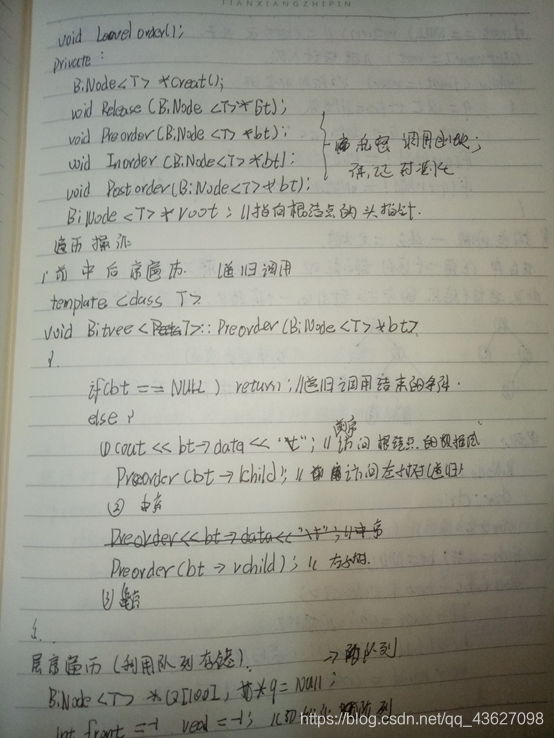 TIANXIANGZHEPIN
void Leavelorder();
private:
BiNode<T> *Creat();
void Release (BiNode <T>* bt);
void Preorder (BiNode <T> *bt);
void Inorder (BiNode<T>*bt);
void Postorder(BiNode<T>*bt);
调用函数;
BiNode <T> *root; //指向根结点的头指针.
遍历操作
前中后序遍历. 递归调用
template <class T>
void Bitree <T>:: Preorder (BiNode <T> *bt)
{
if(bt == NULL) return; //递归调用结束的条件.
else {
前序
① cout << bt->data << "\t"; //访问根结点的数据域
Preorder (bt -> lchild); // 访问左子树(递归)
② 中序
Preorder << bt->data<<"\t"; //中序
Preorder (bt -> rchild); // 右子树.
③
层序遍历 (利用队列存储). ->队列
BiNode <T> *Q[100], *q = NULL;
int front = -1 real = -1; //
https://blog.csdn.net/qq_43627098